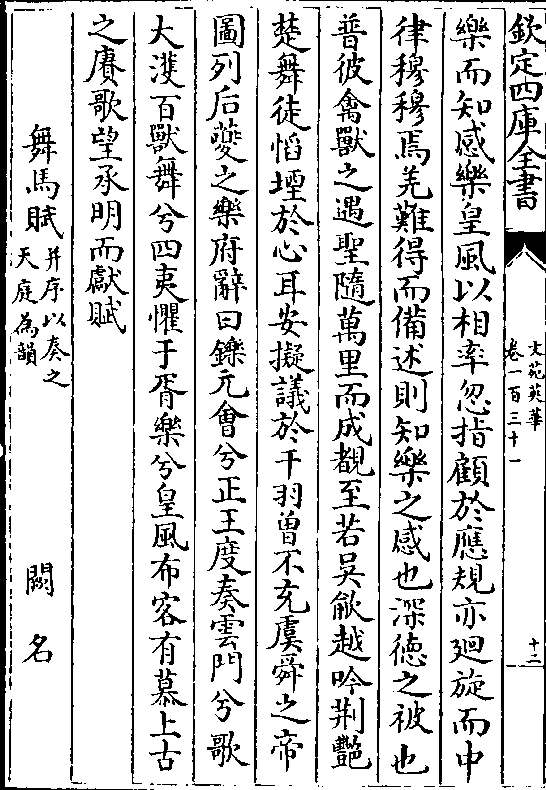 欽定四庫全書
文苑英華
卷一百三十一
十二
樂而知感樂皇風以相率忽指顧於應規亦廻旋而中
律穆穆焉羌難得而備述則知樂之感也深德之被也
普彼禽獸之遇聖隨萬里而成覩至若吳歈越吟荆艷
楚舞徒慆堙於心耳安擬議於干羽曽不充虞舜之帝
圖列后夔之樂府辭曰鑠元會兮正王度奏雲門兮歌
大濩百獸舞兮四夷懼于胥樂兮皇風布客有慕上古
之賡歌望承明而獻賦
舞馬賦
并序以奏之
天庭為韻
闕名